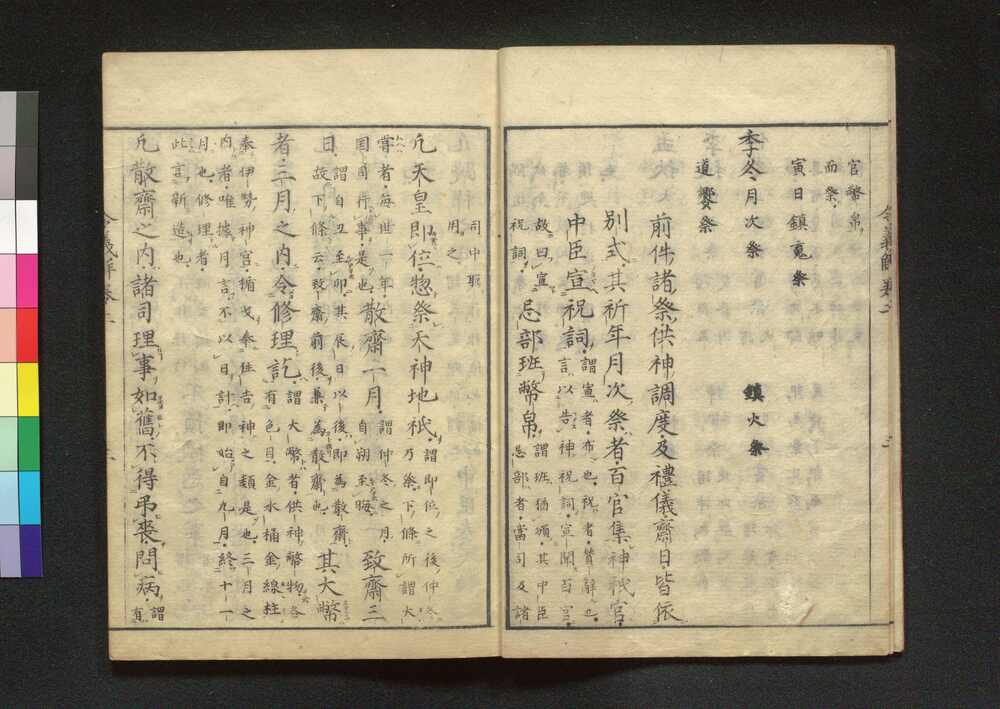 官幣帛
而祭
寅日鎮䰟祭
季冬月次祭
鎮火祭
道饗祭
前件諸祭供神調度及禮儀齋日皆依
別式其祈年月次祭者百官集神祇官
中臣宣祝詞
謂宣者布也祝者賛辞也
言以告神祝詞宣聞百官
故曰宣
祝詞
忌部班幣帛
謂班猶頒其中臣
忌部者當司及諸
司中取
用之
凢天皇即位惣祭天神地祇
謂即位之後仲冬
乃祭下條所謂大
嘗者毎世一年
国司行事是也
散齋一月
謂仲冬之月
自朔至晦
致齋三
日
謂自丑至卯其辰日以後即為散齋
故下條云致齋前後兼為散齋也
其大幣
者三月之内令修理訖
謂大幣者供神幣物各
有色目金水桶金線柱
奉伊勢神宮楯戈奉住吉神之類是也三月之
内者唯據月言不以日計即始自九月終十一
月也修理者
此言新造也
凢散齋之内諸司理事如舊不得弔喪問病
謂
有